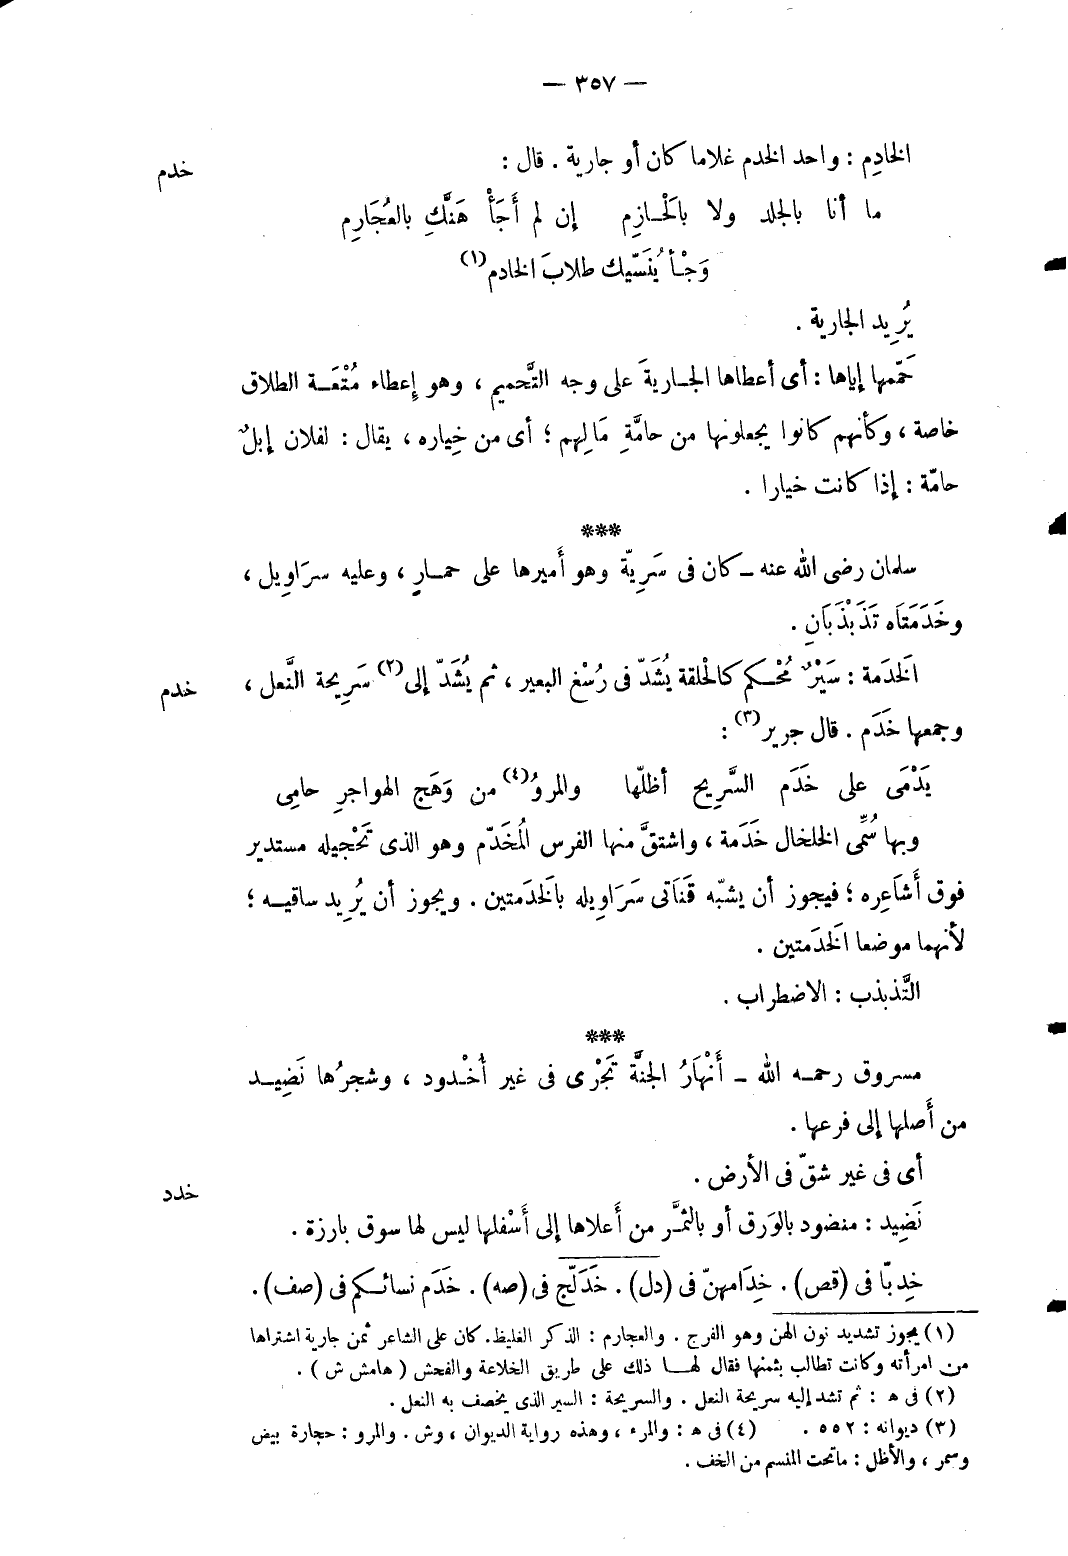 — ٣٥٧ —
الخادِم : واحد الخدم غلاما كان أو جارية . قال :
خدم
ما أنا بالجلد ولا بالْحَـازِمِ إن لم أَجَأْ هَنَّكِ بالعُجَارِمِ
وَجْـأً يُنَسّيك طلابَ الخادم(١)
يُرِيد الجارية .
حَمّمها إياها : أى أعطاها الجـاريةَ على وجه التَّحميم ، وهو إعطاء مُتْعَـة الطلاق
خاصة ، وكأنهم كانوا يجعلونها من حامَّةِ مَالِهم ؛ أى من خِياره ، يقال : لفلان إبلٌ
حامّة : إذا كانت خيارا .
***
سلمان رضى الله عنه ـ كان فى سَرِيّة وهو أَميرها على حمـارٍ ، وعليه سرَاوِيل ،
وخَدَمَتَاه تَذَبْذَبَانِ .
الَخدَمة : سَيْرٌ مُحْـكم كالْحلقة يُشَدّ فى رُسْغ البعير ، ثم يُشَدّ إلى(٢) سَرِيحة النَّعل ،
خدم
وجمعها خَدَم . قال جرير(٣) :
يَدْمَى على خَدَم السَّرِيح أظلّها والمروُ(٤) من وَهَج الهواجرِ حامِى
وبها سُمِّى الخلخال خَدَمة ، واشتقَّ منها الفرس الُمخَدّم وهو الذى تَحْجيله مستدير
فوق أَشاعِره ؛ فيجوز أن يشبّه قَنَاتَى سَرَاوِيله بالَخدَمتين . ويجوز أن يُرِيد ساقيـه ؛
لأنهما موضعا الَخدَمتين .
التَّذبذب : الاضطراب .
***
مسروق رحمـه الله ـ أَنْهَارُ الجنَّة تَجْرْى فى غير أُخْـدود ، وشجرُها نَضِيـد
من أَصلها إلى فرعها .
أى فى غير شقّ فى الأرض .
خدد
نَضِيد : منضود بالوَرق أو بالثمَّر من أَعلاها إلى أَسْفلها ليس لها سوق بارزة .
خِدبّا فى (قص) . خِدَامهنّ فى (دل) . خَدَلّج فى (صه) . خَدَم نسائـكم فى (صف) .
(١) يجوز تشديد نون الهن وهو الفرج . والعجارم : الذكر الغليظ . كان على الشاعر ثمن جارية اشتراها
من امرأته وكانت تطالب بثمنها فقال لهـا ذلك على طريق الخلاعة والفحش ( هامش ش ) .
(٢) فى ه : ثم تشد إليه سريحة النعل . والسريحة : السير الذى يخصف به النعل .
(٣) ديوانه : ٥٥٢ . (٤) فى ه : والمرء ، وهذه رواية الديوان ، وش . والمرو : حجارة بيض
وسمر ، والأظل : ماتحت المنسم من الخف .